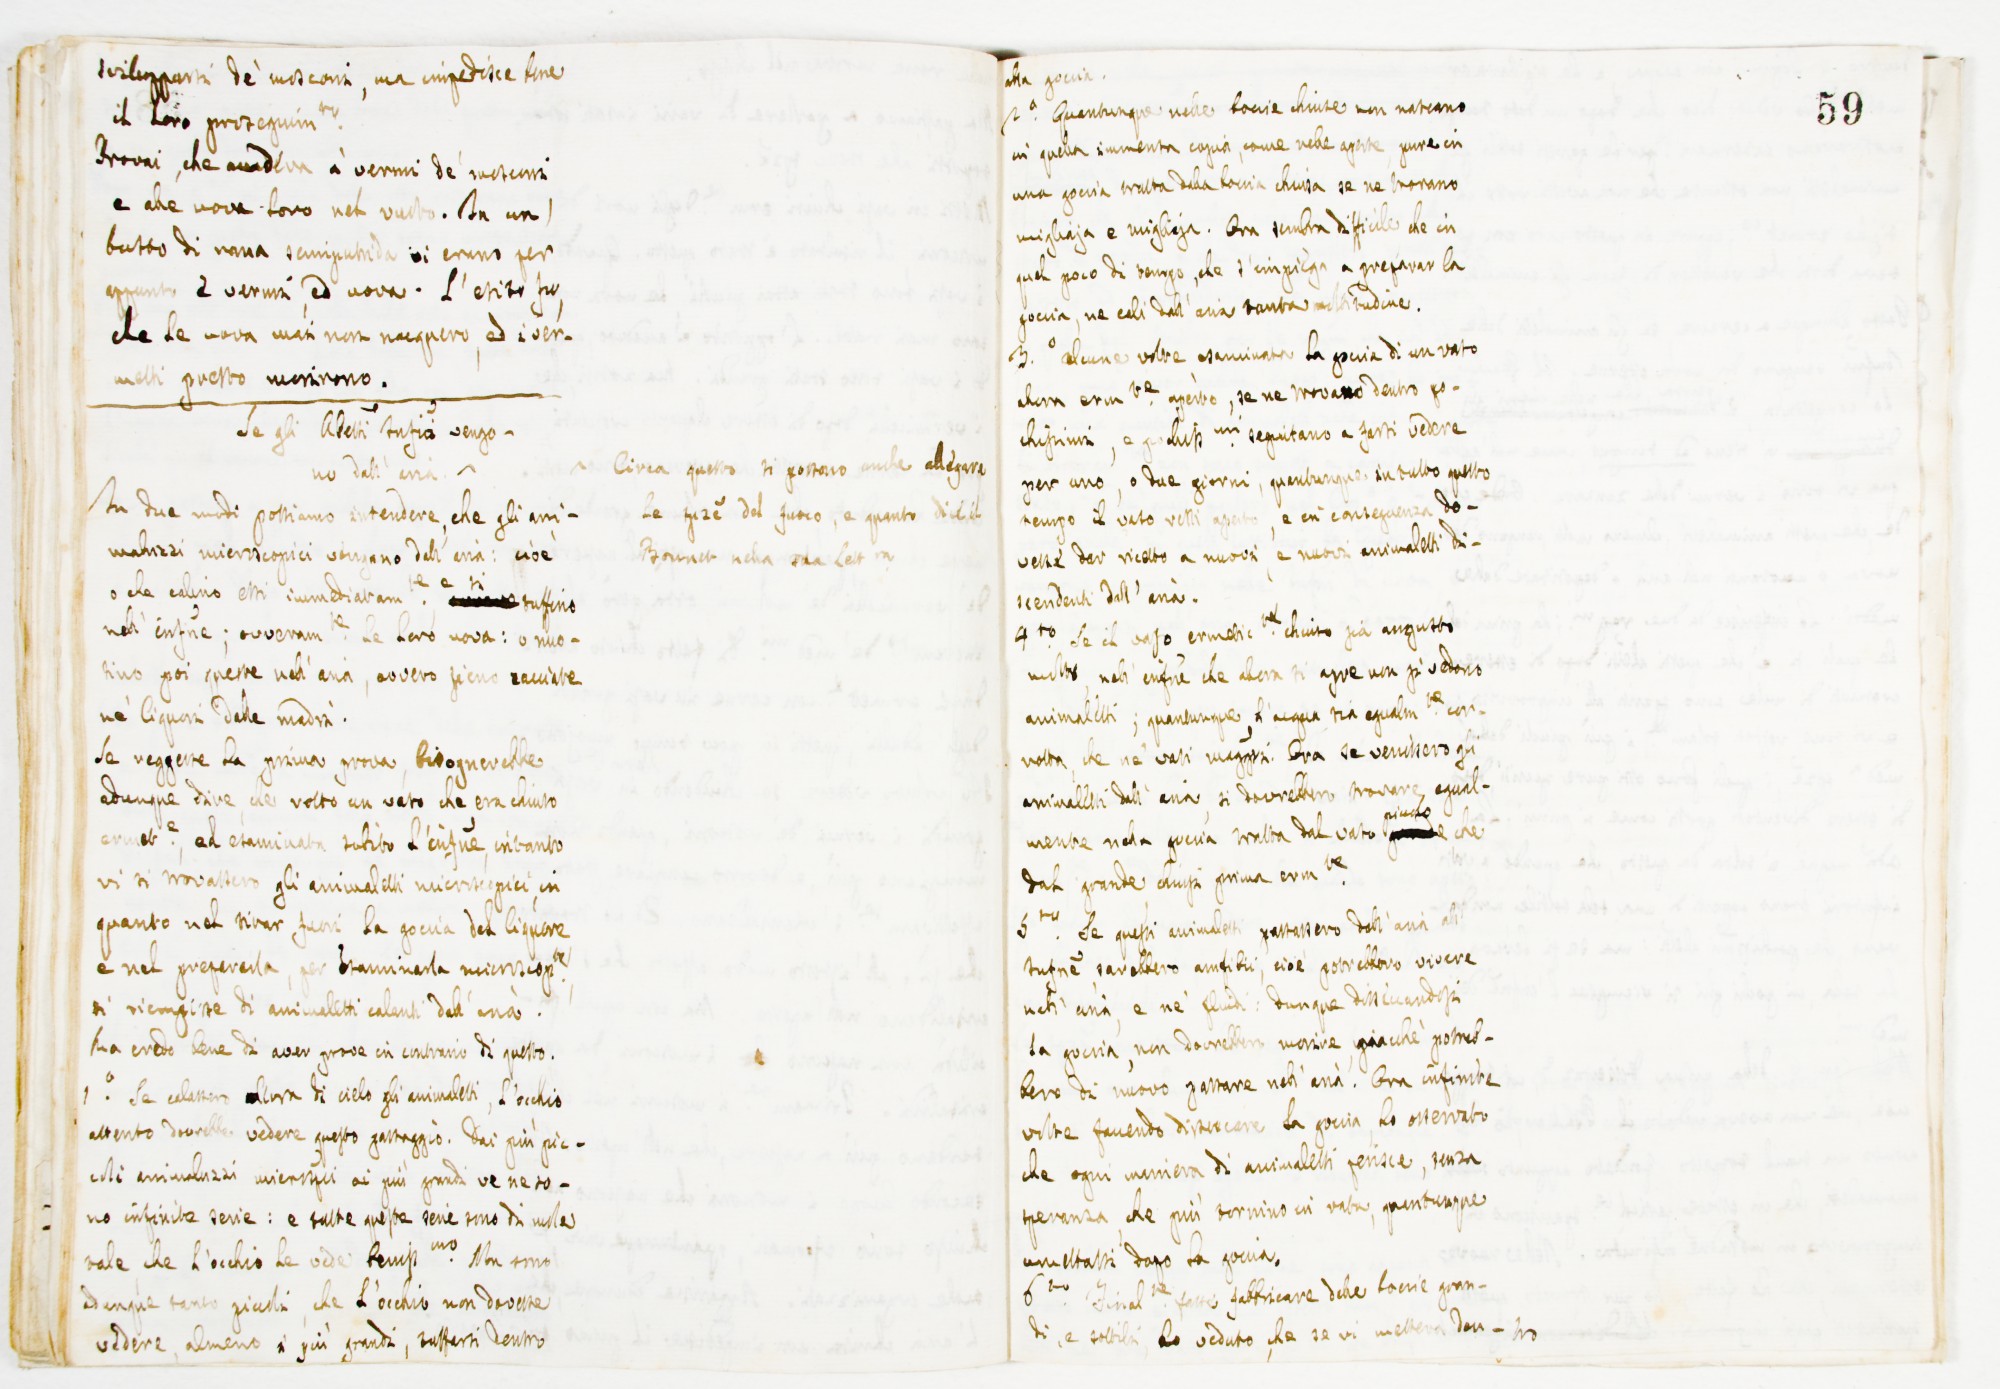 svilupparsi de' mosconi, ma impedisce bene
il loro proseguim.to
Trovai, che accadeva à vermi de' mosconi
e alle uova loro nel vuoto. In un
butto di rana semiputrida vi erano per
appunto 2 vermi, ed uova. L'esito fu,
che le uova mai non nacquero, ed i ver-
metti presto morirono.
Se gli Abetti Infusi vengo-
no dall'aria. ^
^ Circa questo si possono anche allegare
le sperze del fuoco, e quanto dice il
Bonnet nella sua Lett.ra
In due modi possiamo intendere, che gli ani-
maluzzi microscopici vengano dall'aria: cioè
o che calino essi immediatam.te e si tuffino
nell'infus̄e; ovveram.te le loro uova: o nuo-
tino poi queste nell'aria, ovvero sieno cacciate
ne' liquori dalle madri.
Se reggesse la prima prova, bisognerebbe
adunque dire che rotto un vaso che era chiuso
ermet.e, ed esaminata subito l'infus̄e, intanto
vi si trovassero gli animaletti microscopici in
quanto nel tirar fuori la goccia del liquore
e nel prepararla, per esaminarla microscop.te
si riempisse di animaletti calenti dall'aria.
Ma credo bene di aver prove in contrario di questo.
1.o Se calassero allora di cielo gli animaletti, l'occhio
attento dovrebbe vedere questo passaggio. Dai più pic-
coli animaluzzi microscopici ai più grandi ve ne so-
no infinite serie: e tutte queste serie sono di mole
tale che l'occhio le vede beniss.mo Non sono
adunque tanto piccoli, che l'occhio non dovesse
vedere, almeno i più grandi, tuffarsi dentro
59
alla goccia.
2.o Quantunque nelle boccie chiuse non nascano
in quella immensa copia, come nelle aperte, pure in
una goccia tratta dalla boccia chiusa se ne trovano
migliaja e migliaja. Ora sembra difficile che in
quel poco di tempo, che s'impiega a preparar la
goccia, ne cali dall'aria tanta moltitudine.
3.o Alcune volte esaminata la goccia di un vaso
allora erm.te aperto, se ne trovano dentro po-
chissimi, e pochiss.mi seguitano a farsi vedere
per uno, o due giorni, quantunque in tutto questo
tempo il vaso resti aperto, e in conseguenza do-
vesse dar ricetto a nuovi, e nuovi animaletti di-
scendenti dall'aria.
4.to Se il vaso ermetic.te chiuso sia angusto
molto, nell'infus̄e che allora si apre non si vedono
animaletti; quantunque l'acqua sia egualm.te cor-
rotta, che ne' vasi maggiori. Ora se venissero gli
animaletti dall'aria, si dovrebbero trovare egual-
mente nella goccia tratta dal vaso piccolo che
dal grande chiusi prima erm.te
5.to Se questi animaletti passassero dall'aria all'
infus̄e sarebbero amfibii, cioè potrebbero vivere
nell'aria, e ne' fluidi: dunque disseccandosi
la goccia, non dovrebbero morire, giacchè potreb-
bero di nuovo passare nell'aria. Ora infinite
volte facendo disseccare la goccia, ho osservato
che ogni maniera di animaletti perisce, senza
speranza, che più tornino in vita, quantunque
umettassi dopo la goccia.
6.to Final.te fatte fabbricare delle boccie gran-
di, e sottili, ho veduto, che se vi metteva den-tro